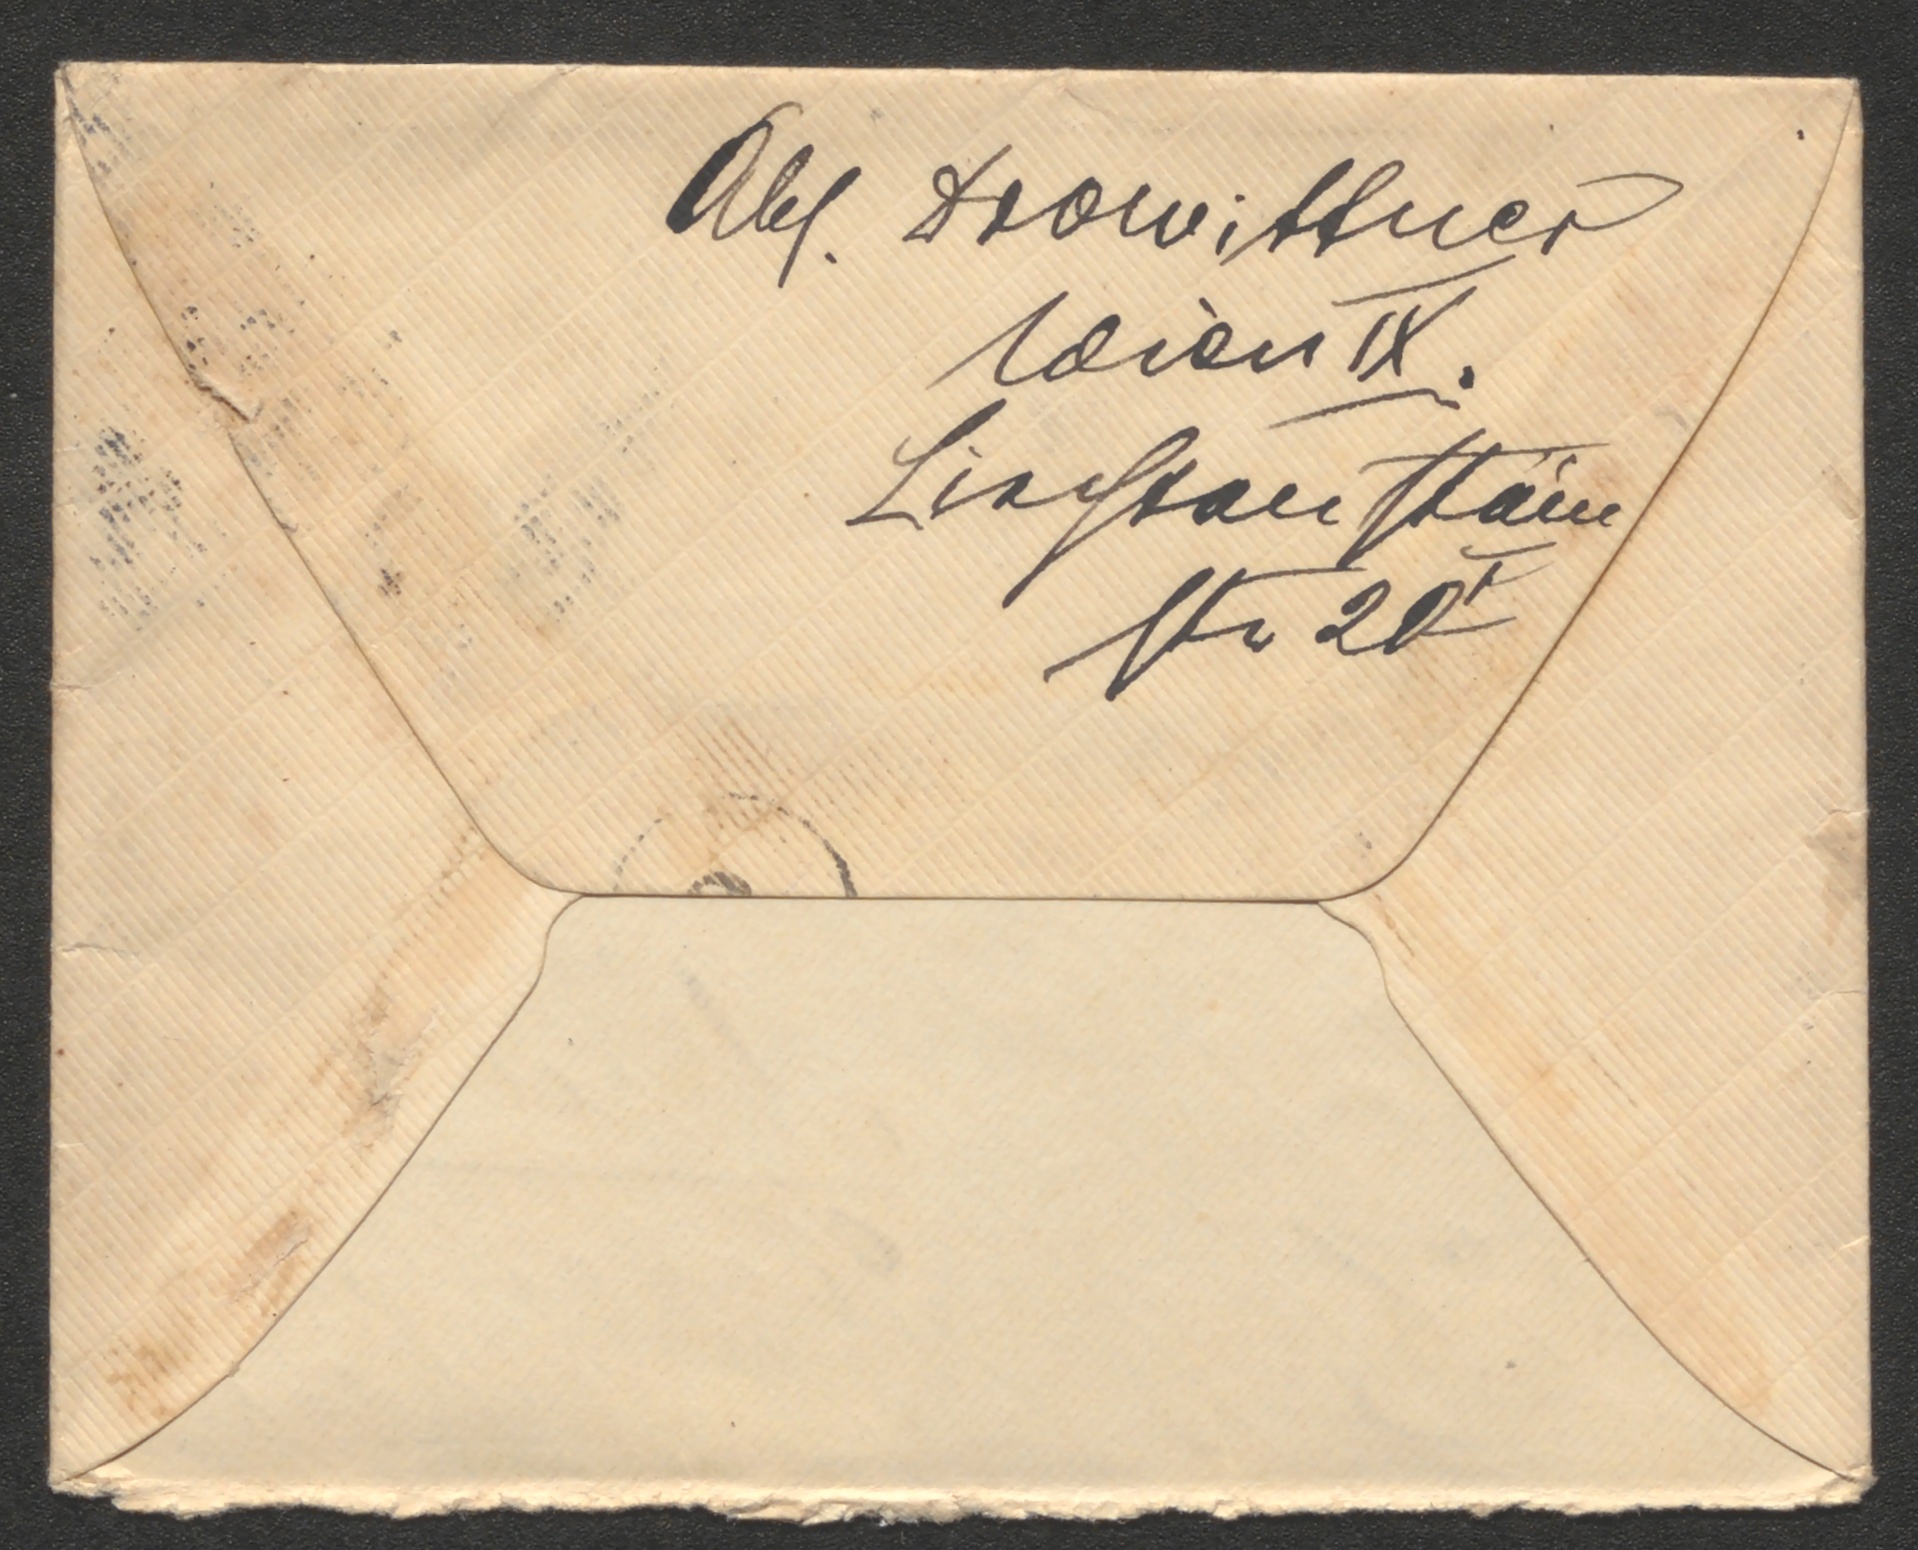 Abs. Drowittner
Wien IX.
Liechtenstein
str 20 I